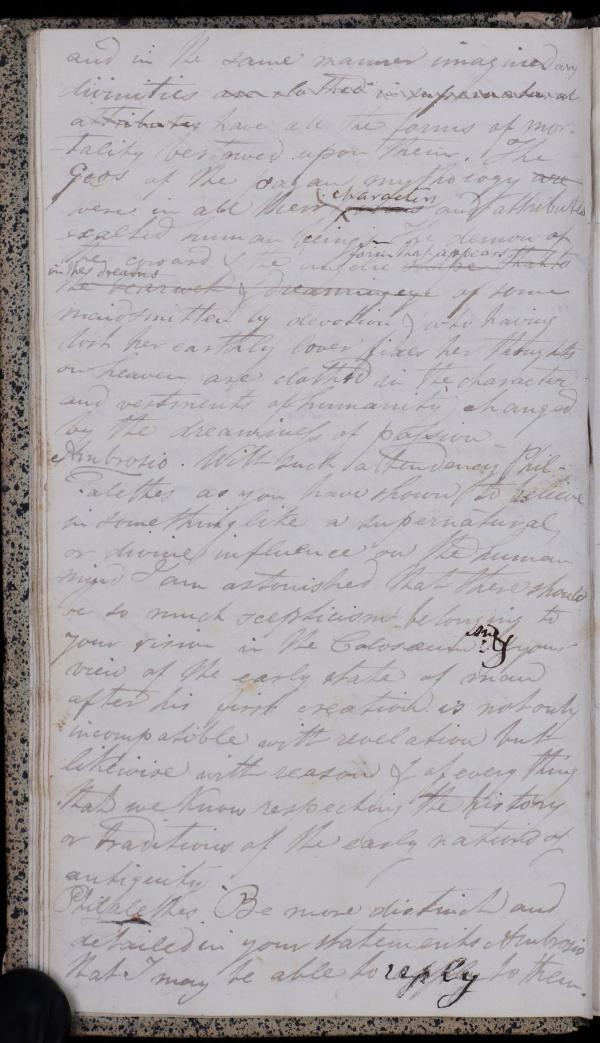 and in the same manner imagined any
divinities are clothed in supernatural
attributes have all the forms of mor-
tality bestowed upon them. The
Gods of the pagan mythology are
characters
were in all their and attributes
exalted human beings. The demon of
form that appears
the coward & the angelic is the that to
in the dreams
the dreaming eye of some
maid smitten by devotion, & who having
lost her earthly lover fixes her thoughts
on heaven are clothed in the character
and vestments of humanity changed
by the dreaminess of passion
Ambrosio. With such a tendency Phil-
alethes as you have shown to believe
in something like a supernatural
or divine influence on the human
mind I am astonished that there should
be so much scepticism belonging to
your vision in the Colosæum. And
& your
view of the early state of man
after his first creation is not only
incompatible with revelation but
likewise with reason & of every thing
that we know respecting the history
or traditions of the early nations of
antiquity.
Philalethes. Be more distinct and
detailed in your statements Ambrosio
that I may be able to reply to them.